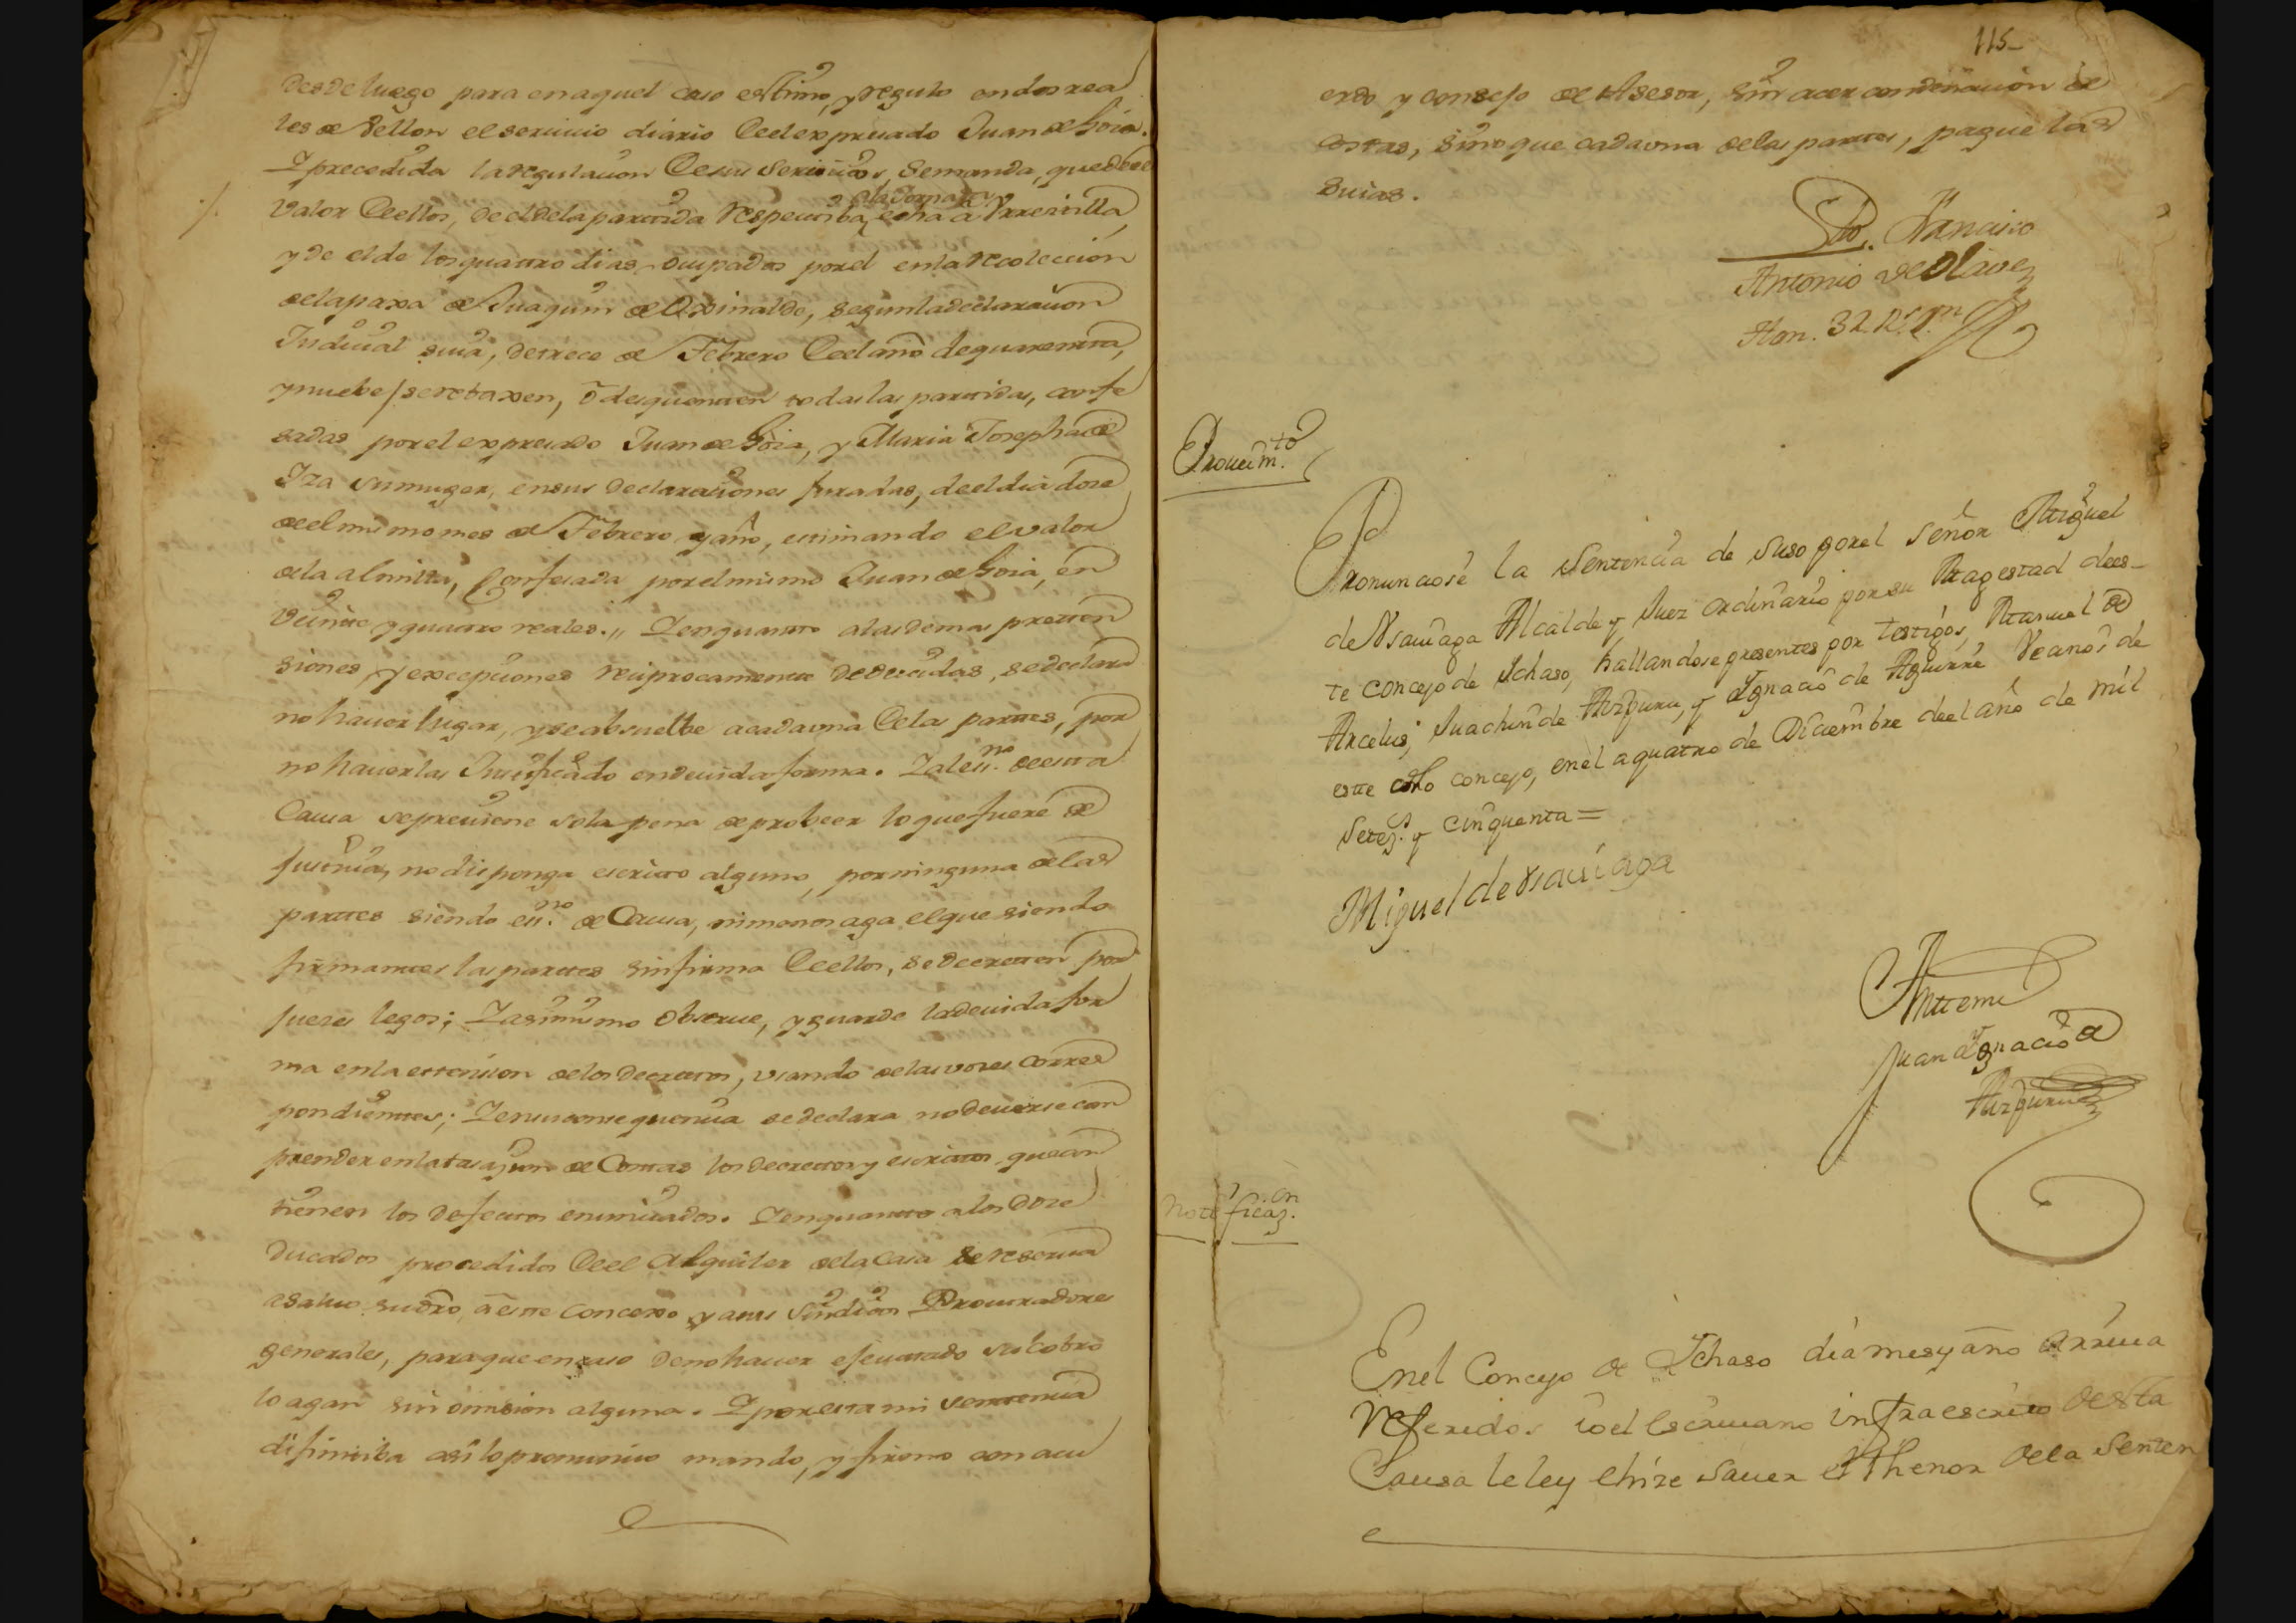 desde luego para en aquel caso estimo, y regulo en dos rea
les de Vellon el seruicio diario de el expresado Juan de Goia.
Y precedida la regulacion de sus seruicios, se manda, que de el
Valor de ellos, de el de la partida respectiba a la Jornada echa a Urresti̅lla,
y de el de los quattro dias ocupados por el en la recoleccion
de la paxa de Juaquin de Orsinalde, segun la declaracion
Judicial suia, de trece de Febrero de el año de quarentta,
y nuebe / se rebaxen, o desquenten todas las partidas, confe
sadas por el expresado Juan de Goia, y Maria Josepha de
Iza su muger, en sus declaraciones juradas, de el dia doze
de el mismo mes de Febrero y año, estimando el valor
de la almilla, Confesada por el mismo Juan de Goia, en
veinte y quattro reales.,, Y en quantto a las demas preten
siones, y excepciones reciprocamente deducidas, se declara
no hauer lugar, y se absuelbe a cada vna de las partes, por
no hauerlas Justificado en deuida forma. Y al essno. de esta
Causa se preuiene so la pena de probeer lo que fuere de
justicia, no disponga escritto alguno, por ninguna de las
parttes siendo essno. de Causa, ni menos aga, el que siendo
firmantes las parttes sin firma de ellos, se decretten por
jueces legos; Y asimismo obserue, y guarde la deuida for
ma en la ettension de los decrettos, vsando de las vozes corres
pondientes; Y en su consequencia se declara no deuerse com
prender en la tasazion de Costtas los decrettos y escrittos que con
tienen los defectos enunciados. Y en quantto a los doze
ducados procedidos de el Alquiler de la Casa se reserua
a saluo su dro. a este concexo y a sus Sindicos Procuradores
generales, para que en caso de no hauer efectuado su cobro
lo agan sin omision alguna. Y por esta mi senttencia
difinitiba asi lo pronuncio mando, y firmo con acu
115
erdo y consejo de Asesor, sin acer condenacion de
costas, sino que cada vna de las parttes, pague las
suias.
Lizdo. Francisco
Antonio de Olave
Hon. 32 Rs. Vn.
Proueimto.
Pronunciose la Sentencia de suso por el Señor Miguel
de Vsauiaga Alcalde y Juez ordinario por su Magestad de es-
te concejo de Ichaso, hallandose presentes por testigos, Manuel de
Arcelus, Juachin de Aizpuru, y Ignacio de Aguirre Vecinos de
este dho concejo, en el a quatro de Diciembre de el año de mil
Setezs. y cinquenta =
Miguel de Vsauiaga
Ante mi
Juan Ygnacio de
Aizpuru
Notificazon.
En el Concejo de Ichaso dia mes y año arriua
Referidos io el Escriuano infraescrito desta
Causa le ley e hize sauer el thenor de la Senten